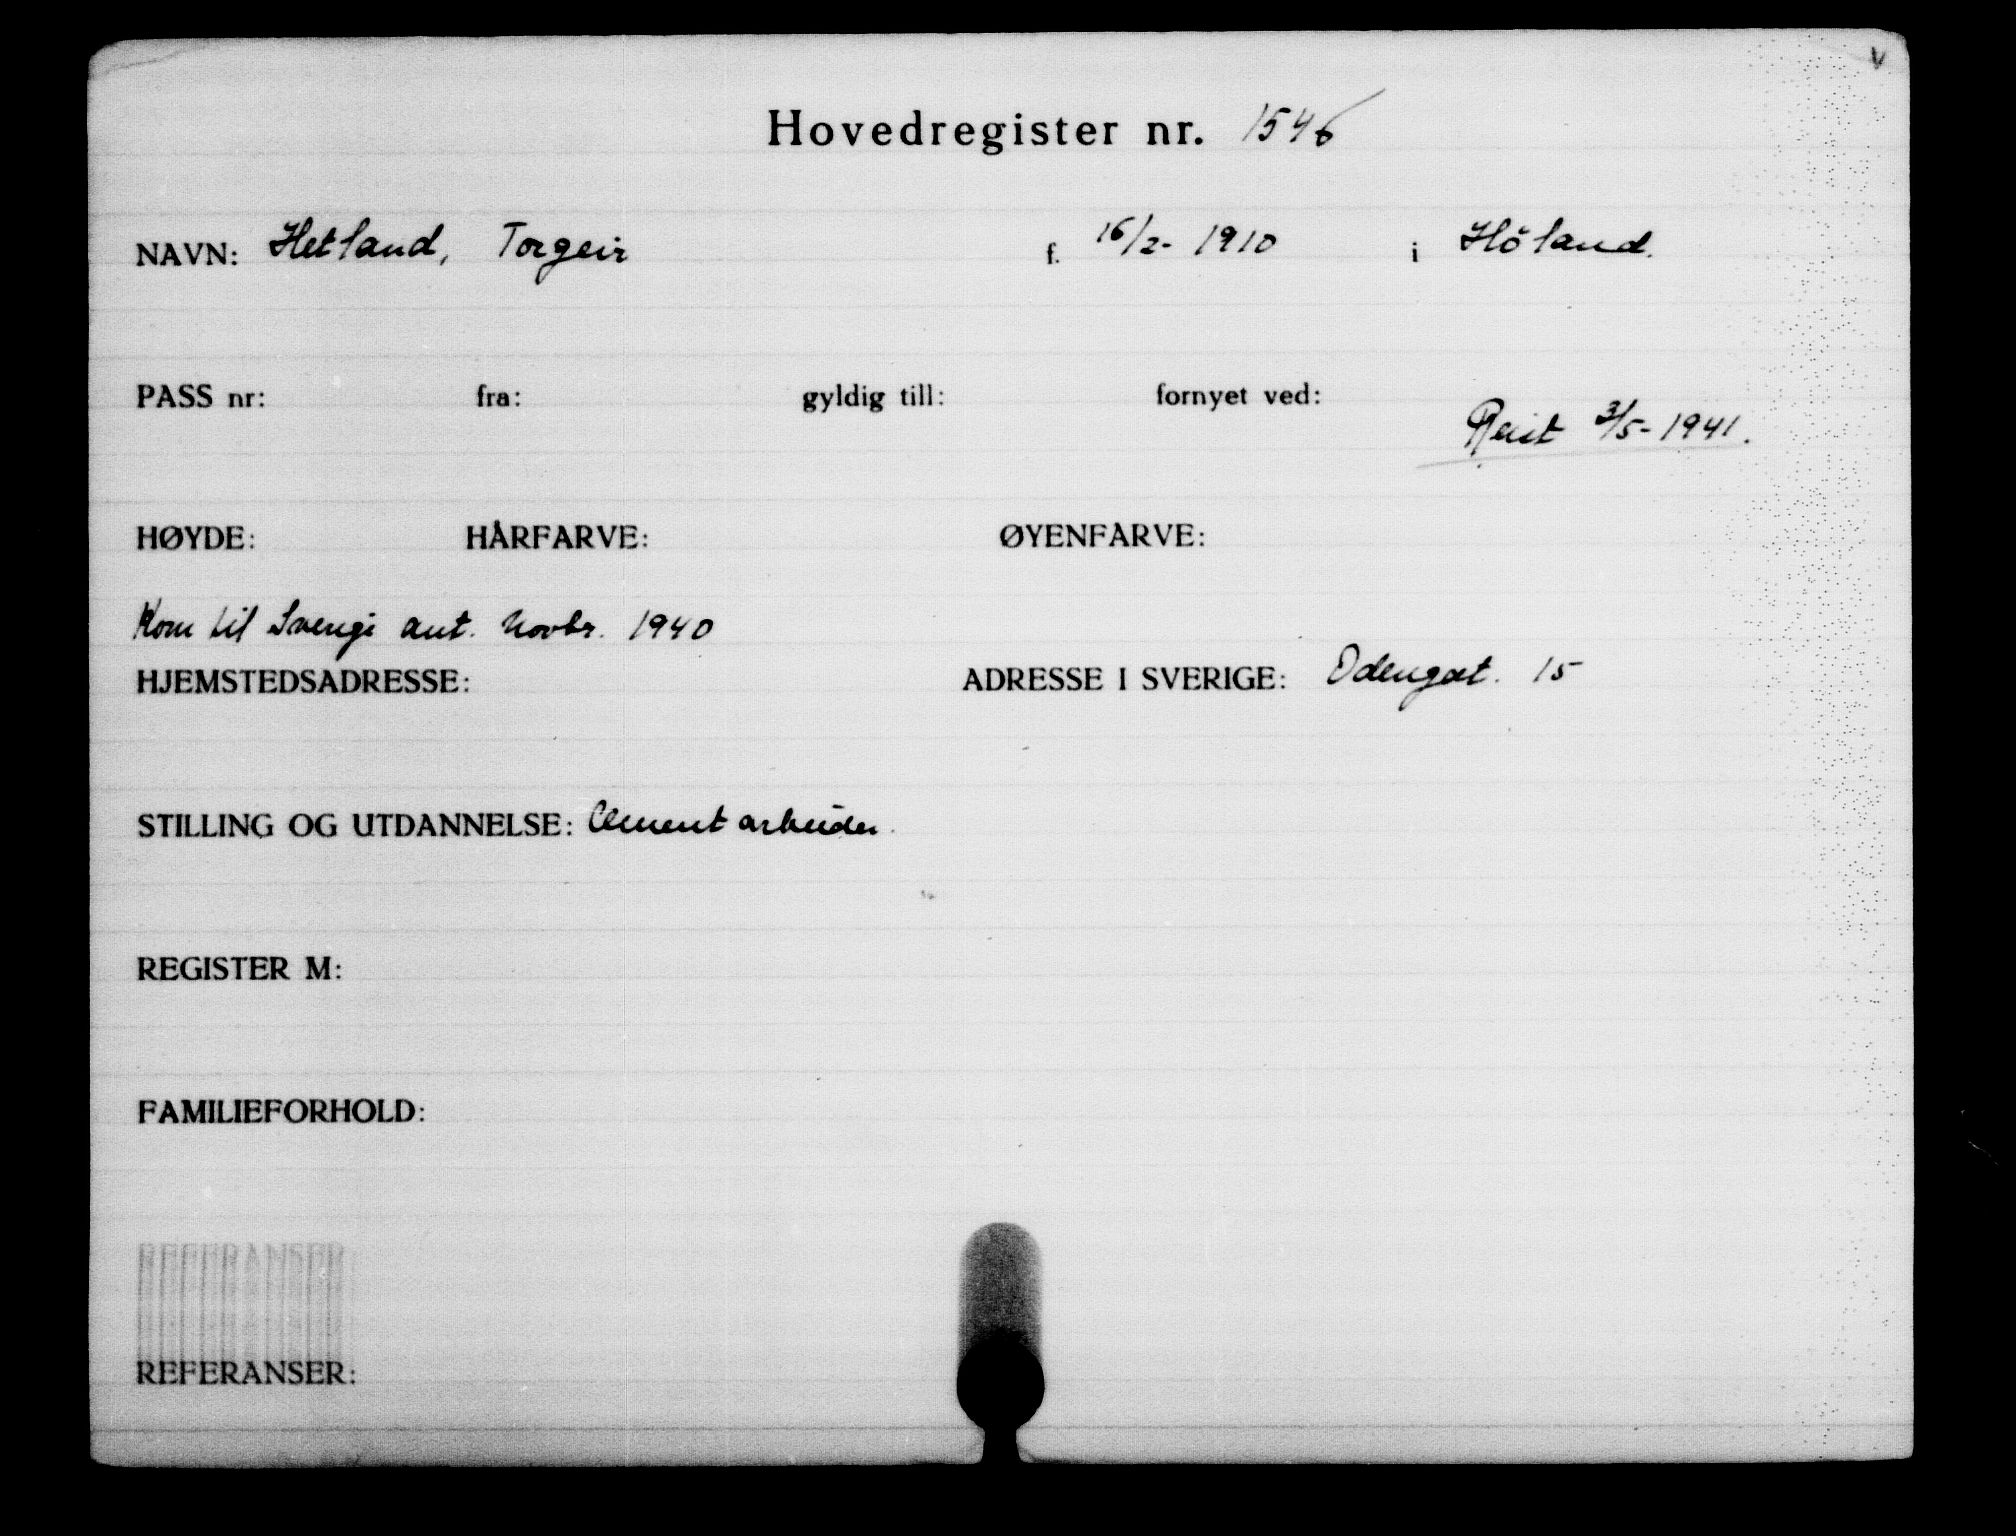 v
Hovedregister nr. 1546
NAVN: Hetland, Torgeir f. 16/2- 1910 i Höland.
PASS nr: fra: gyldig till: fornyet ved:
Reist 3/5-1941.
HØYDE: HÅRFARVE: ØYENFARVE:
Kom til Sverige ant. Novbr. 1940
HJEMSTEDSADRESSE: ADRESSE I SVERIGE: Odengat. 15
STILLING OG UTDANNELSE: Cement arbeider.
REGISTER M:
FAMILIEFORHOLD:
REFERANSER: